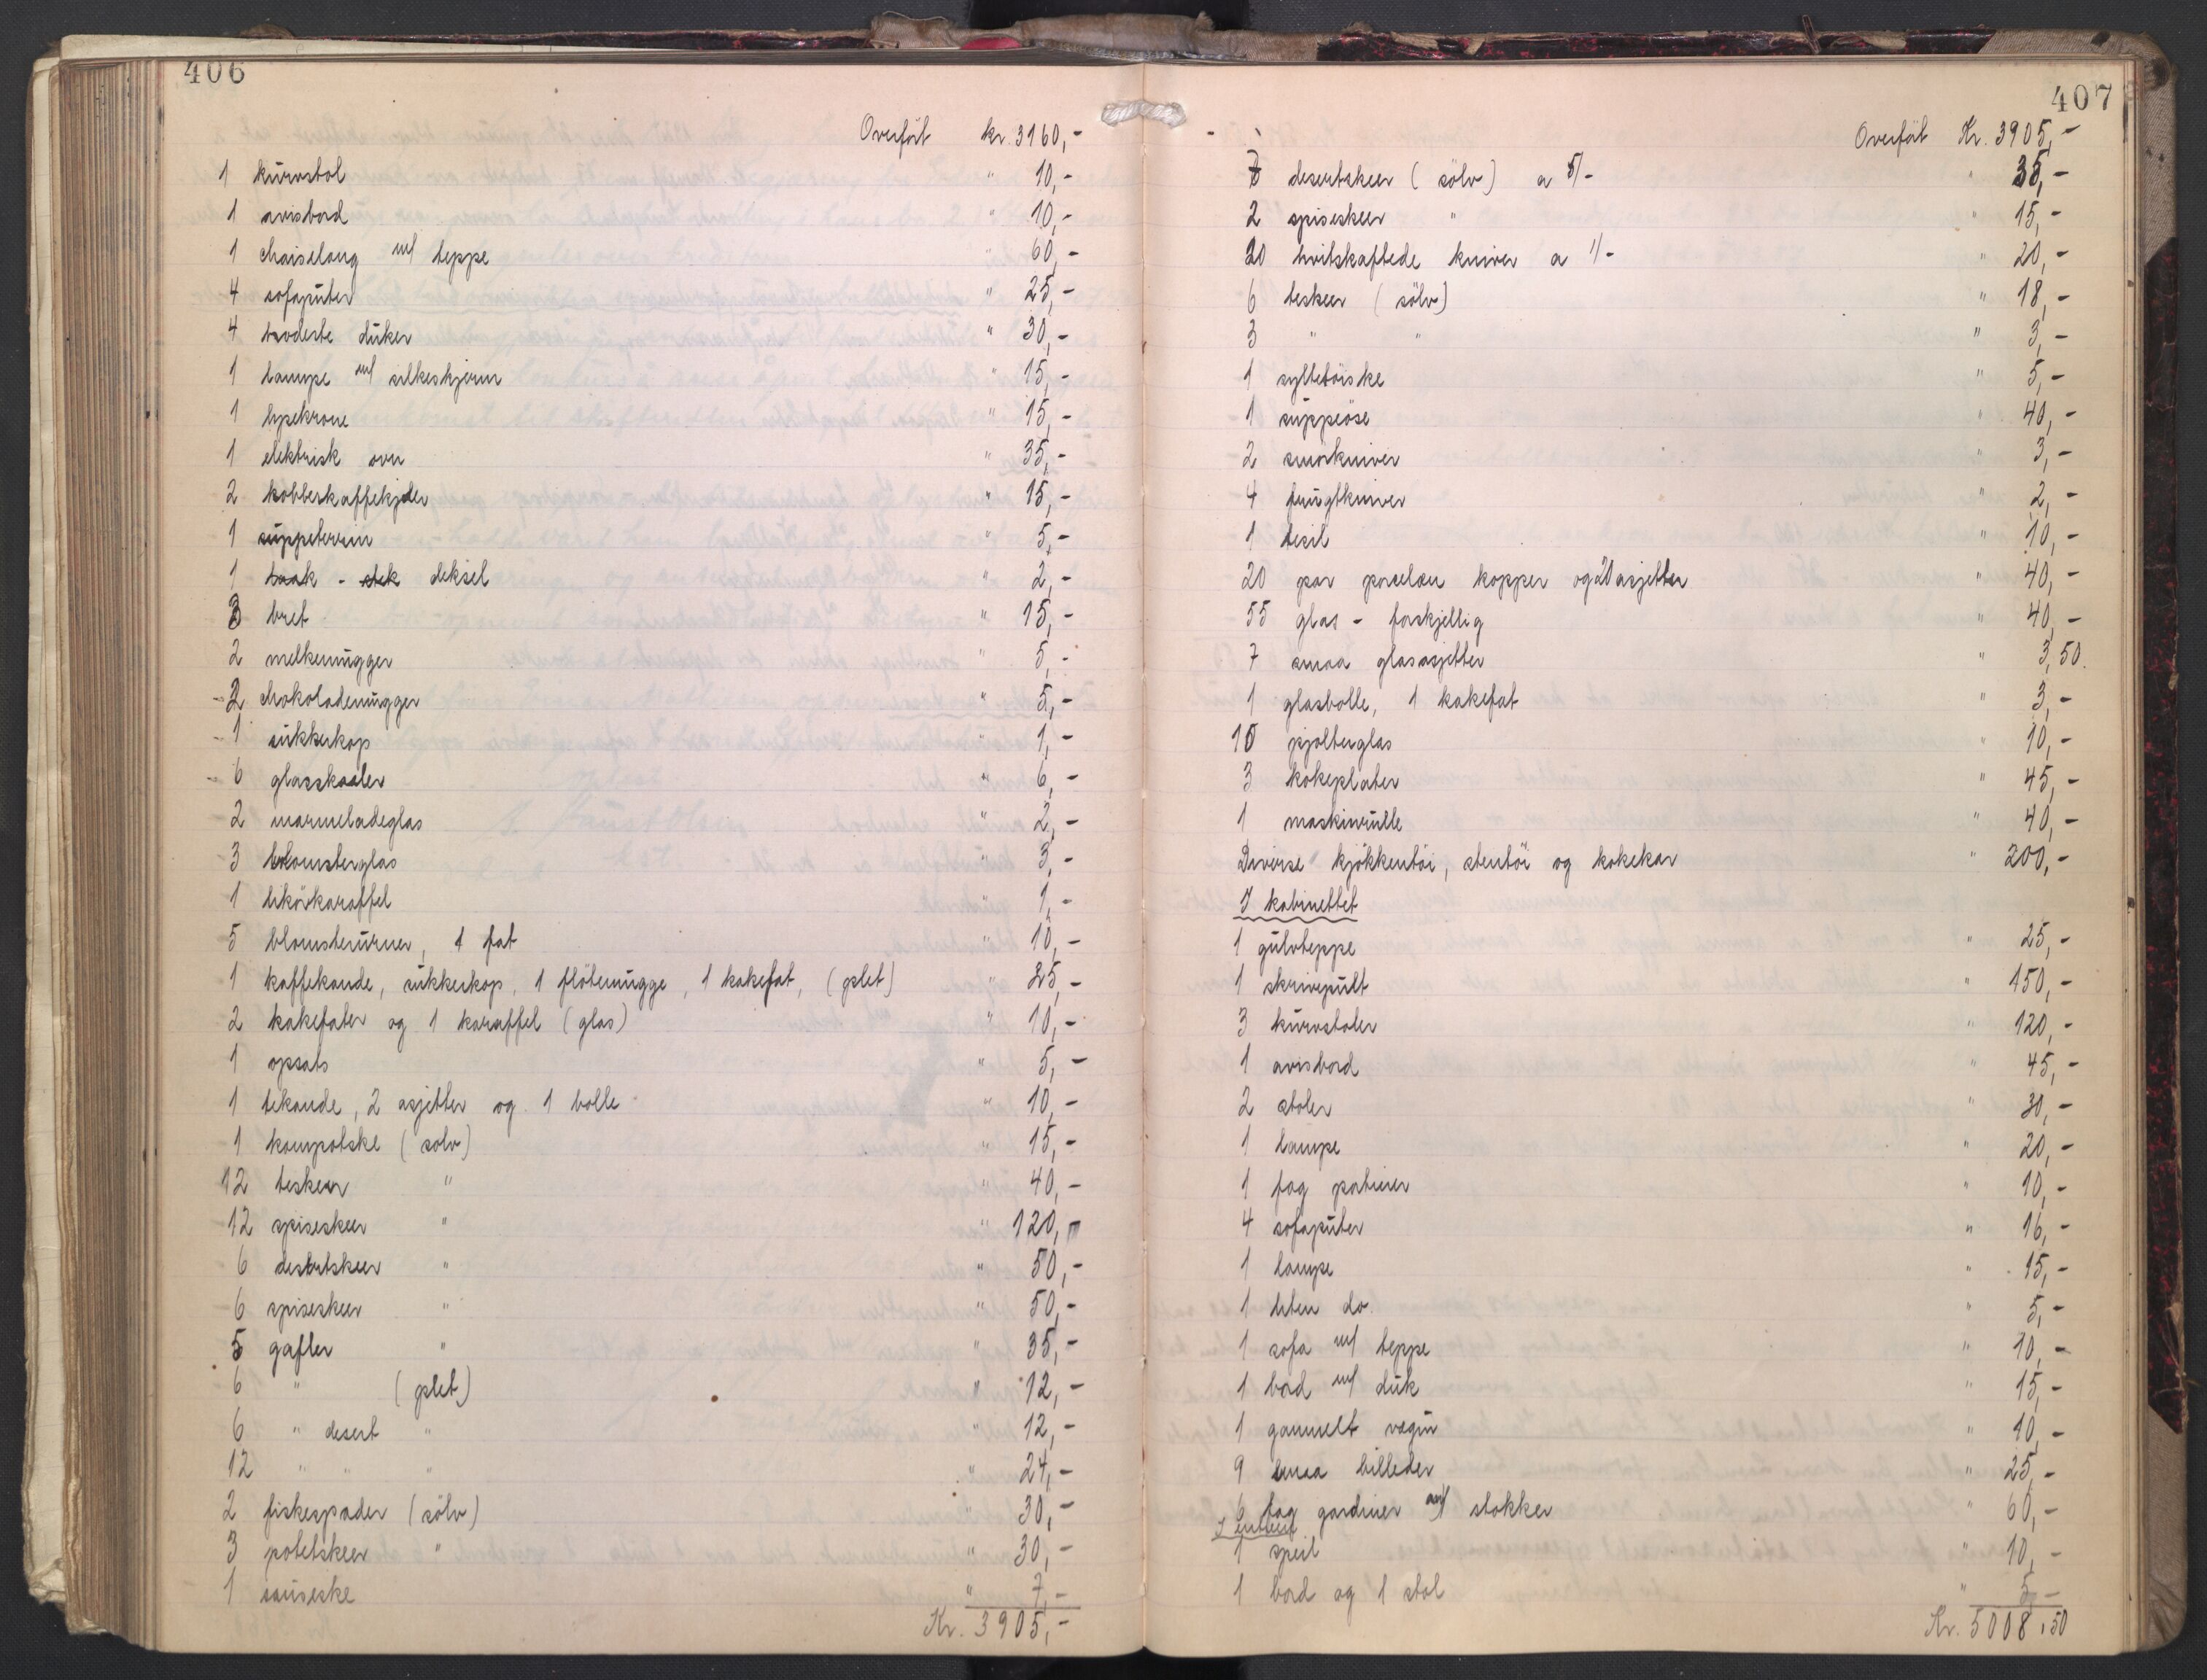 406
Overført kr. 3160,-
1 kurvstol " 10,-
1 avisbord " 10,-
1 chaiselong m/ teppe " 60,-
4 sofaputer " 25,-
4 broderte duker " 30,-
1 lampe m/ silkeskjerm " 15,-
1 lysekrone " 15,-
1 elektrisk ovn " 35,-
2 kobberkaffekjeler " 15,-
1 suppeterrin " 5,-
1 deksel " 2,-
3 bret " 15,-
2 melkemugger " 5,-
2 chokolademugger " 5,-
1 sukkerkop " 1,-
6 glasskaaler " 6,-
2 marmeladeglas " 2,-
3 blomsterglas " 3,-
1 likörkaraffel " 1,-
5 blomsterurner, 1 fat " 10,-
1 kaffekande, sukkerkop, 1 flötemugge, 1 kakefat, (plet) " 25,-
2 kakefater og 1 karaffel (glas) " 10,-
1 opsats " 5,-
1 tekande, 2 asjetter og 1 bolle " 10,-
1 kompotske (sölv) " 15,-
12 teskeer " " 40,-
12 spiseskeer " " 120,-
6 desertskeer " " 50,-
6 spiseskeer " " 50,-
5 gafler " " 35,-
6 " (plet) " 12,-
6 " desert " " 12,-
12 " " " " 24,-
2 fiskespader (sölv) " 30,-
3 potetskeer " " 30,-
1 sauseske " 7,-
Kr. 3905,-
407
Overført Kr. 3905,-
7 desertskeer (sölv) a 5/- " 35,-
2 spiseskeer " " 15,-
20 hvitskaftede kniver a 1/- " 20,-
6 teskeer (sölv) " 18,-
3 " " " 3,-
1 syltetöiske " 5,-
1 suppeöse " 40,-
2 smörkniver " 3,-
4 frugtkniver " 2,-
1 tesil " 10,-
20 par porselen kopper og 20 asjetter " 40,-
55 glas - forskjellig " 40,-
7 smaa glasasjetter " 3,50
1 glasbolle, 1 kakefat " 3,-
10 pjolterglas " 10,-
3 kokeplater " 45,-
1 maskinrulle " 40,-
Diverse kjökkentöi, stentöi og kokekar " 200,-
I kabinettet
1 gulvteppe " 25,-
1 skrivepult " 150,-
3 kurvstoler " 120,-
1 avisbord " 45,-
2 stoler " 30,-
1 lampe " 20,-
1 fag portierer " 10,-
4 sofaputer " 16,-
1 lampe " 15,-
1 liten do. " 5,-
1 sofa m/ teppe " 10,-
1 bord m/ duk " 15,-
1 gammelt vegur " 10,-
9 smaa billeder " 25,-
6 fag gardiner m/ stokker " 60,-
I entreen
1 speil " 10,-
1 bord og 1 stol " 5,-
Kr. 5008,50